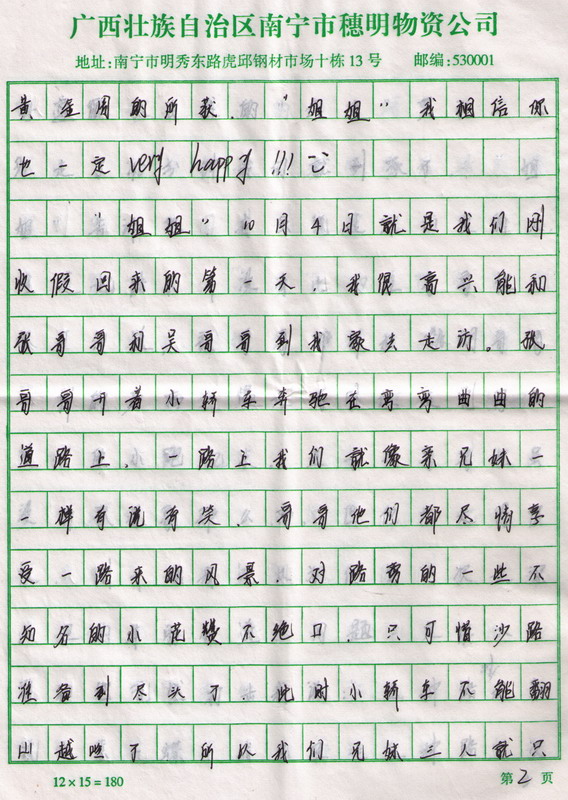 广西壮族自治区南宁市穗明物资公司
地址:南宁市明秀东路虎邱钢材市场十栋13号 邮编:530001
黄金周的所获，“姐姐”我相信你
也一定very happy!!!
“姐姐”10月4日就是我们刚
收假回来的第一天，我很高兴能和
张哥哥和吴哥哥到我家去走访。张
哥哥开着小轿车奔驰在弯弯曲曲的
道路上，一路上我们就像亲兄妹一
一样有说有笑，哥哥他们都尽情享
受一路来的风景，对路旁的一些不
知名的小花赞不绝口，只可惜沙路
准备到尽头了，此时小轿车不能翻
山越 了 所以我们兄妹三人就只
12×15=180 第2页